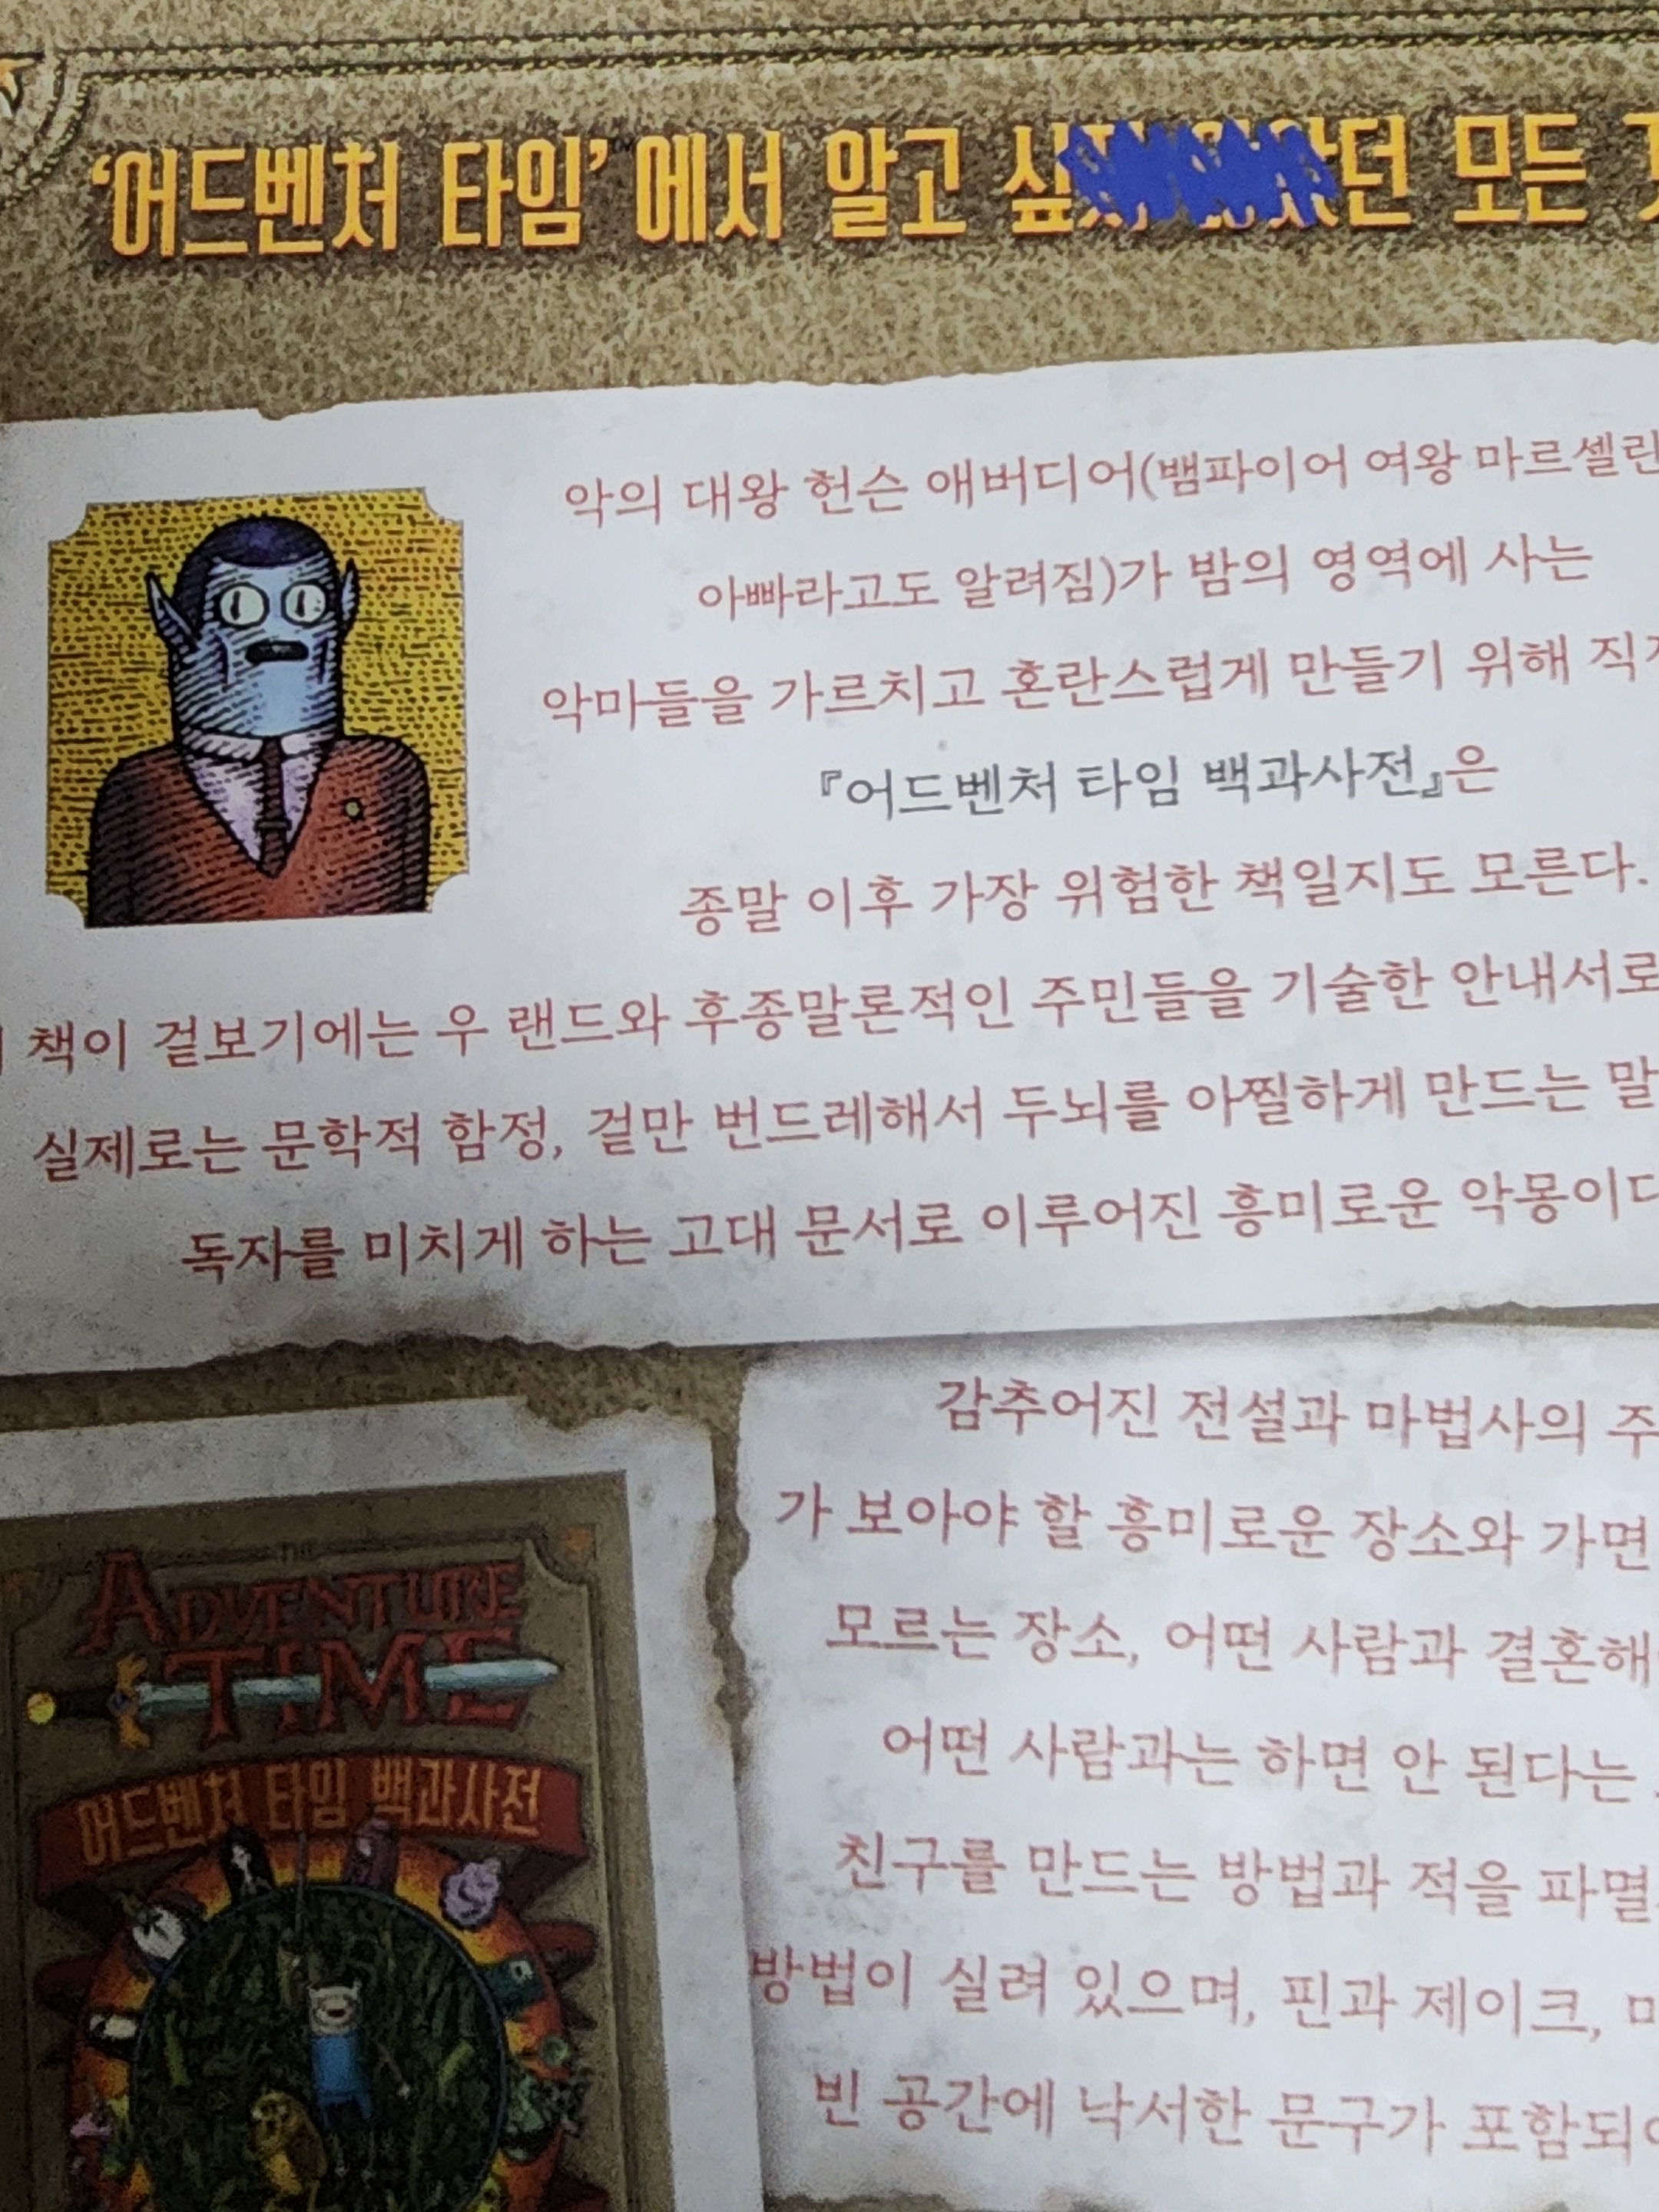 ‘어드벤처 타임’에서 알고 던 모든
악의 대왕 헌슨 애버디어(뱀파이어 여왕 마르셀린
아빠라고도 알려짐)가 밤의 영역에 사는
악마들을 가르치고 혼란스럽게 만들기 위해
『어드벤처 타임 백과사전』은
종말 이후 가장 위험한 책일지도 모른다.
책이 겉보기에는 우 랜드와 후종말론적인 주민들을 기술한 안내서로
실제로는 문학적 함정, 겉만 번드레해서 두뇌를 아찔하게 만드는 말
독자를 미치게 하는 고대 문서로 이루어진 흥미로운 악몽이다
감추어진 전설과 마법사의 주
가 보아야 할 흥미로운 장소와 가면
모르는 장소, 어떤 사람과 결혼해
어떤 사람과는 하면 안 된다는
친구를 만드는 방법과 적을 파멸
방법이 실려 있으며, 핀과 제이크,
빈 공간에 낙서한 문구가 포함되
THE
ADVENTURE
TIME
어드벤처 타임 백과사전